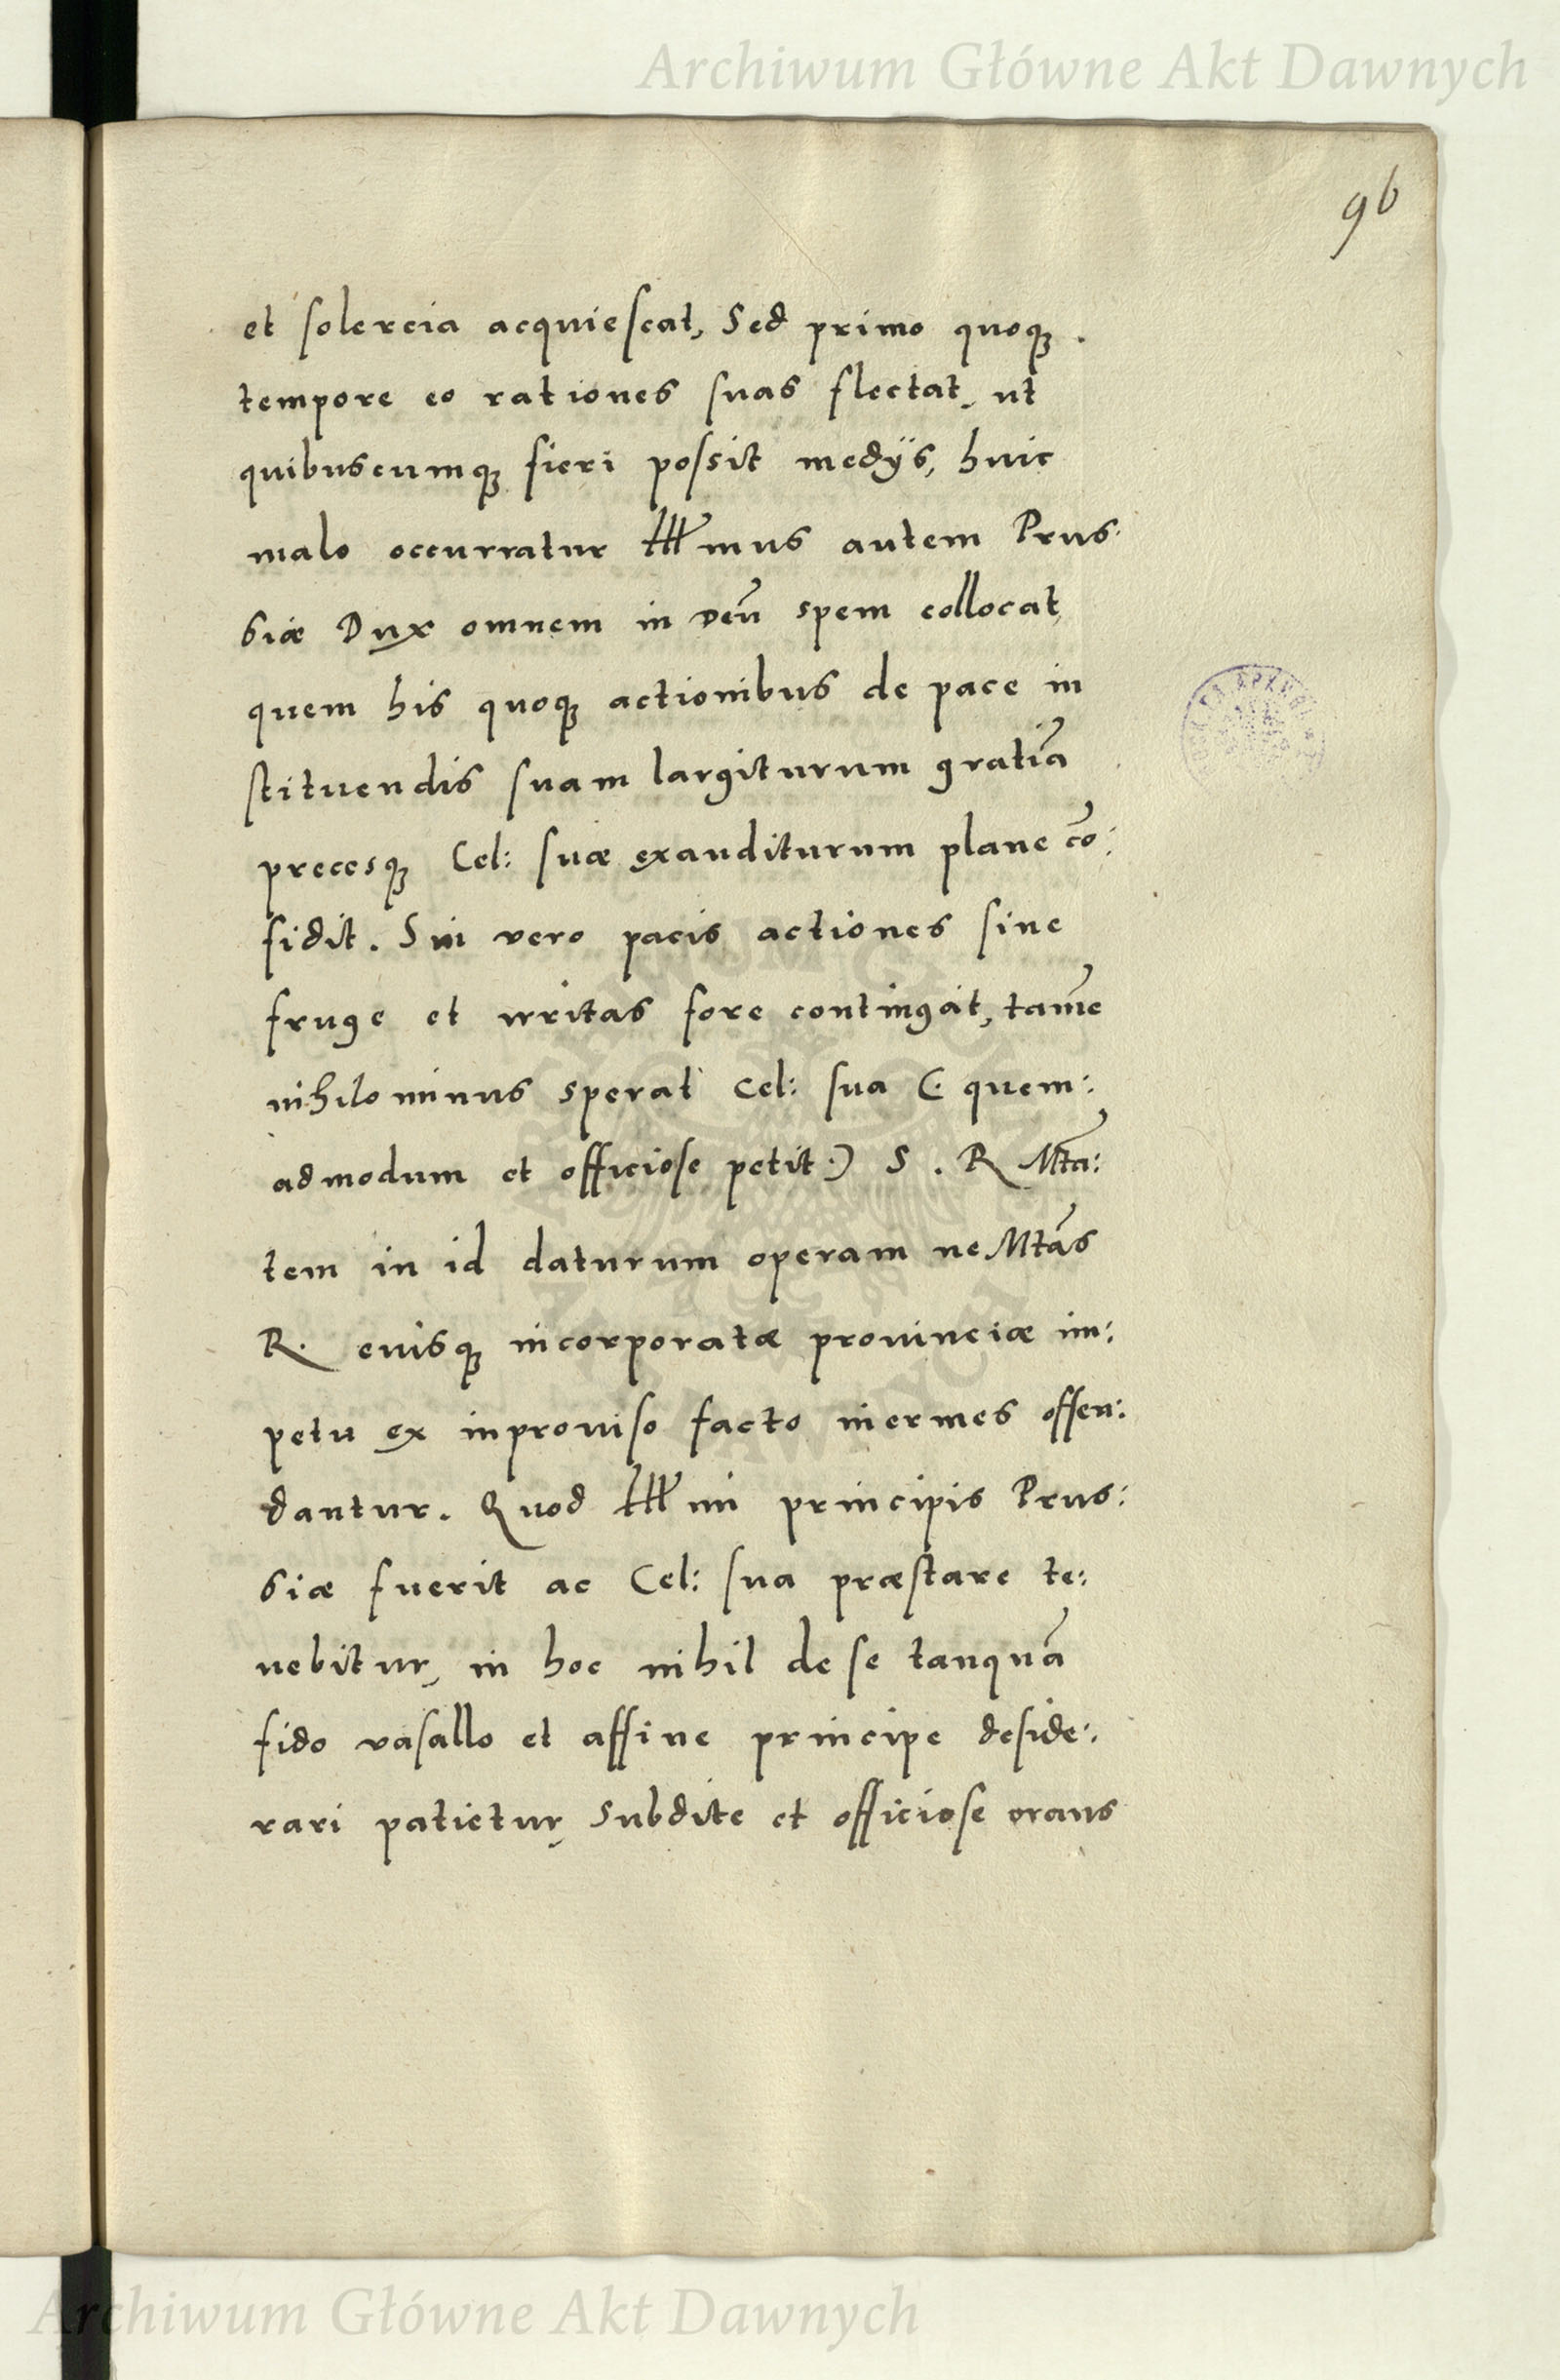 Archiwum Główne Akt Dawnych
96
et solercia acquiescat, Sed primo quoqꝫ
tempore eo rationes suas flectat, ut
quibuscumqꝫ fieri possit medÿs, huic
malo occurratur Illmus autem Prus:
siæ Dux omnem in deū spem collocat,
quem his quoqꝫ actionibus de pace in
stituendis suam largiturum gratiā
precesqꝫ Cel: suæ exauditurum plane cō:
fidit. Sin vero pacis actiones sine
fruge et irritas fore contingat, tamē
nihilominus sperat Cel: sua (: quem:
admodum et officiose petit :) S. R Mtā:
tem in id daturum operam ne Mtās
R. eiusqꝫ incorporatæ provinciæ im:
petu ex inproviso facto inermes offen:
dantur. Quod Illmi principis Prus:
siæ fuerit ac Cel: sua præstare te:
nebitur, in hoc nihil de se tanquā
fido vasallo et affine principe deside:
rari patietur, Subdite et officiose orans
Archiwum Główne Akt Dawnych